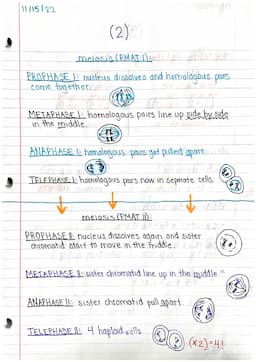 11/15/22
(2)
meiosis (PMAT I):
PROPHASE I: nucleus dissolves and homologous pairs
come together.
METAPHASE I: homologous pairs line up side by side
in the middle.
ANAPHASE I: homologous pairs get pulled apart.
TELEPHASE I: homologous pairs now in seperate cells.
meiosis (PMAT II):
PROPHASE II: nucleus dissolves again and sister
chromatid start to move in the middle.
METAPHASE II: sister chromatid line up in the middle.
ANAPHASE II: sister chromatid pull apart.
TELEPHASE II: 4 haploid cells
(x2)=4!